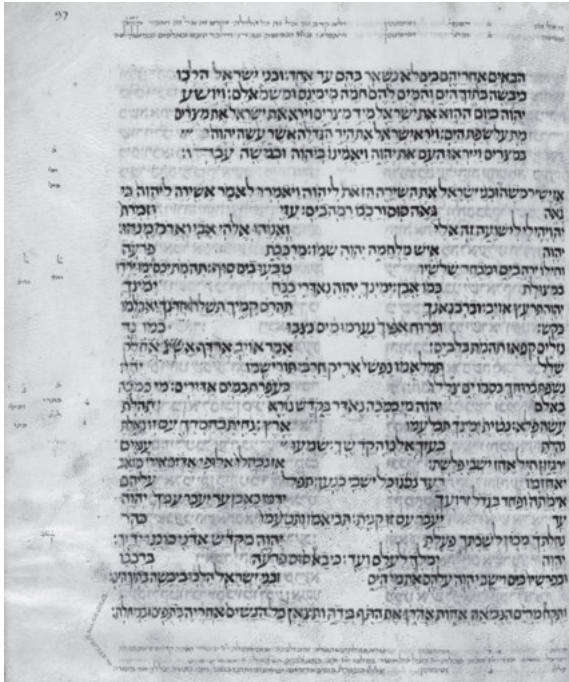 97
הבאים אחריהם בים לא נשאר בהם עד אחד: ובני ישראל הלכו
ביבשה בתוך הים והמים להם חמה מימינם ומשמאלם: ויושע
יהוה ביום ההוא את ישראל מיד מצרים וירא ישראל את מצרים
מת על שפת הים: וירא ישראל את היד הגדלה אשר עשה יהוה
במצרים וייראו העם את יהוה ויאמינו ביהוה ובמשה עבדו:
אז ישיר משה ובני ישראל את השירה הזאת ליהוה ויאמרו לאמר אשירה ליהוה כי
גאה גאה סוס ורכבו רמה בים: עזי וזמרת
יה ויהי לי לישועה זה אלי ואנוהו אלהי אבי וארממנהו:
יהוה איש מלחמה יהוה שמו: מרכבת פרעה
וחילו ירה בים ומבחר שלשיו טבעו בים סוף: תהמת יכסימו ירדו
במצולת כמו אבן: ימינך יהוה נאדרי בכח ימינך
יהוה תרעץ אויב: וברב גאונך תהרס קמיך תשלח חרנך יאכלמו
כקש: וברוח אפיך נערמו מים נצבו כמו נד
נזלים קפאו תהמת בלב ים: אמר אויב ארדף אשיג אחלק
שלל תמלאמו נפשי אריק חרבי תורישמו ידי:
נשפת ברוחך כסמו ים צללו כעפרת במים אדירים: מי כמכה
באלם יהוה מי כמכה נאדר בקדש נורא תהלת
עשה פלא: נטית ימינך תבלעמו ארץ: נחית בחסדך עם זו גאלת
נהלת בעזך אל נוה קדשך: שמעו עמים
ירגזון חיל אחז ישבי פלשת: אז נבהלו אלופי אדום אילי מואב
יאחזמו רעד נמגו כל ישבי כנען: תפל עליהם
אימתה ופחד בגדל זרועך ידמו כאבן עד יעבר עמך יהוה
עד יעבר עם זו קנית: תבאמו ותטעמו בהר
נחלתך מכון לשבתך פעלת יהוה מקדש אדני כוננו ידיך:
יהוה ימלך לעלם ועד: כי בא סוס פרעה ברכבו
ובפרשיו בים וישב יהוה עלהם את מי הים ובני ישראל הלכו ביבשה בתוך הים:
ותקח מרים הנביאה אחות אהרן את התף בידה ותצאן כל הנשים אחריה בתפים ובמחלת: